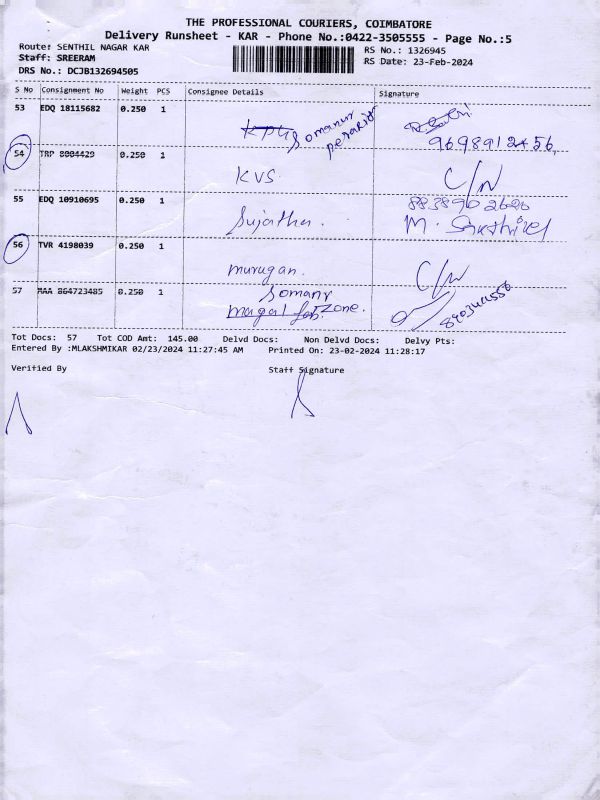 THE PROFESSIONAL COURIERS, COIMBATORE
Delivery Runsheet - KAR - Phone No.:0422-3505555 - Page No.:5
Route: SENTHIL NAGAR KAR
RS No.: 1326945
Staff: SREERAM
RS Date: 23-Feb-2024
DRS No.: DCJB132694505
S No Consignment No Weight PCS Consignee Details Signature
53 EDQ 18115682 0.250 1
Somanur
9698912456
54 TRP 8004429 0.250 1
KVS C/N
55 EDQ 10910695 0.250 1
Sujatha. M. Sakthivel
56 TVR 4198039 0.250 1
murugan. C/N
57 MAA 864723485 0.250 1
Somanr
zone.
Tot Docs: 57 Tot COD Amt: 145.00 Delvd Docs: Non Delvd Docs: Delvy Pts:
Entered By :MLAKSHMIKAR 02/23/2024 11:27:45 AM Printed On: 23-02-2024 11:28:17
Verified By Staff Signature